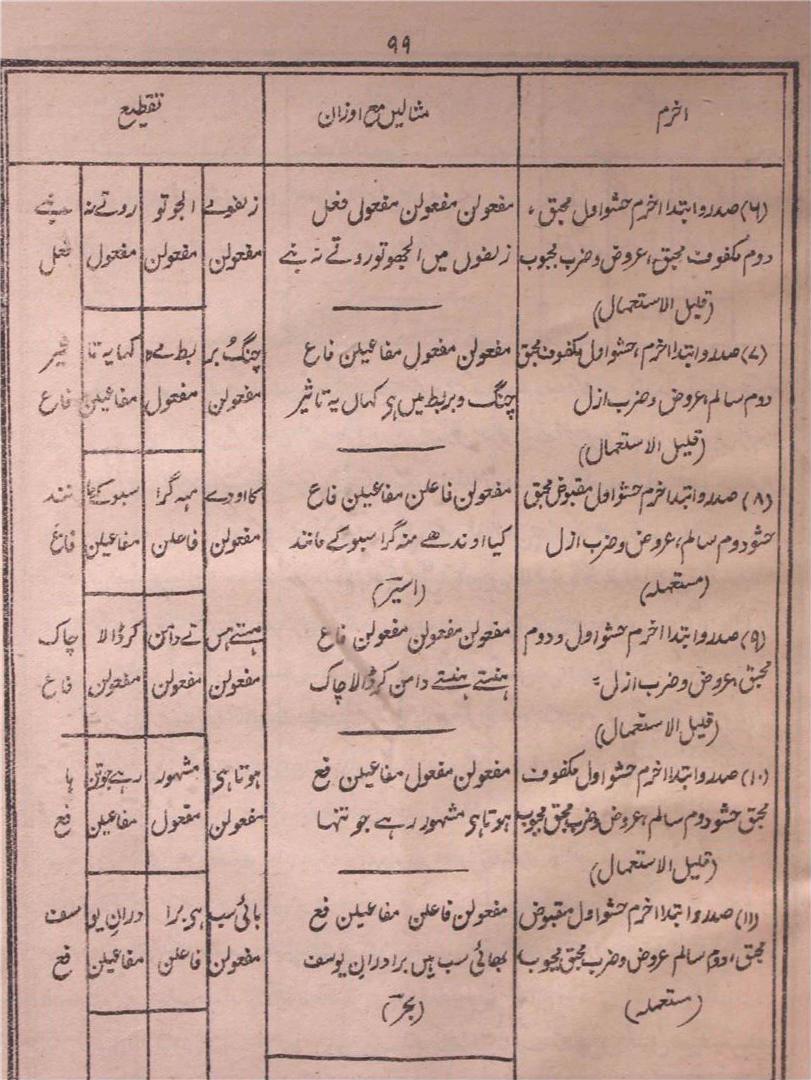 ۹۹
اخرم مثالیں مع اوزان تقطیع
(۶) صدر و ابتدا اخرم حشو اول محبق، مفعولن مفعولن مفعول فعل زلفومے الجو تو روتے نہ بنے
دوم مکفوف محبق، عروض و ضرب مجبوب زلفوں میں الجھو تو روتے نہ بنے مفعولن مفعولن مفعول فعل
(قلیل الاستعمال)
(۷) صدر و ابتدا اخرم، حشو اول مکفوف محبق مفعولن مفعول مفاعیلن فاع چنگ بر بط مے ہ کہا یہ تا ثیر
دوم سالم، عروض و ضرب ازل چنگ و بربط میں ہی کہاں یہ تاثیر مفعولن مفعول مفاعیلن فاع
(قلیل الاستعمال)
(۸) صدر و ابتدا اخرم حشو اول مقبوض محبق مفعولن فاعلن مفاعیلن فاع کا اودے مہ گرا سبو کے ما نند
حشو دوم سالم، عروض و ضرب ازل کیا اوندھے منہ گرا سبو کے مانند مفعولن فاعلن مفاعیلن فاع
(مستعملہ) (اسیرؔ)
(۹) صدر و ابتدا اخرم حشو اول و دوم مفعولن مفعولن مفعولن فاع ہستے ہس تے دامن کر ڈالا چاک
محبق، عروض و ضرب ازل ہنستے ہنستے دامن کر ڈالا چاک مفعولن مفعولن مفعولن فاع
(قلیل الاستعمال)
(۱۰) صدر و ابتدا اخرم حشو اول مکفوف مفعولن مفعول مفاعیلن فع ہوتا ہی مشہور رہے جو تن ہا
محبق حشو دوم سالم، عروض و ضرب محبق مجبوب ہوتا ہی مشہور رہے جو تنہا مفعولن مفعول مفاعیلن فع
(قلیل الاستعمال)
(۱۱) صدر و ابتدا اخرم حشو اول مقبوض مفعولن فاعلن مفاعیلن فع بائی سب ہی برا دران یو سف
محبق، دوم سالم عروض و ضرب محبق مجبوب بھائی سب ہیں برادران یوسف مفعولن فاعلن مفاعیلن فع
(مستعملہ) (بحرؔ)